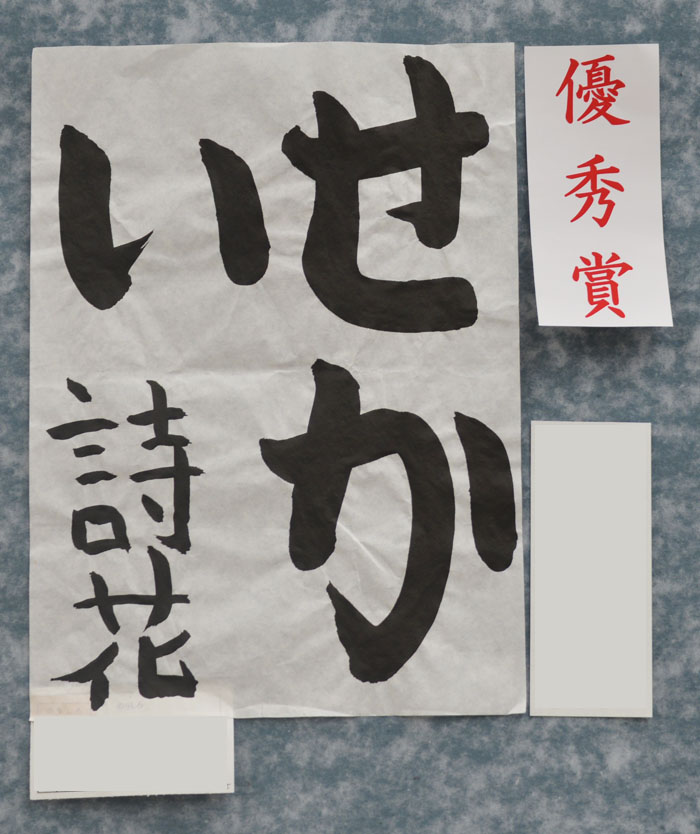 優秀賞
せか
い
詩花